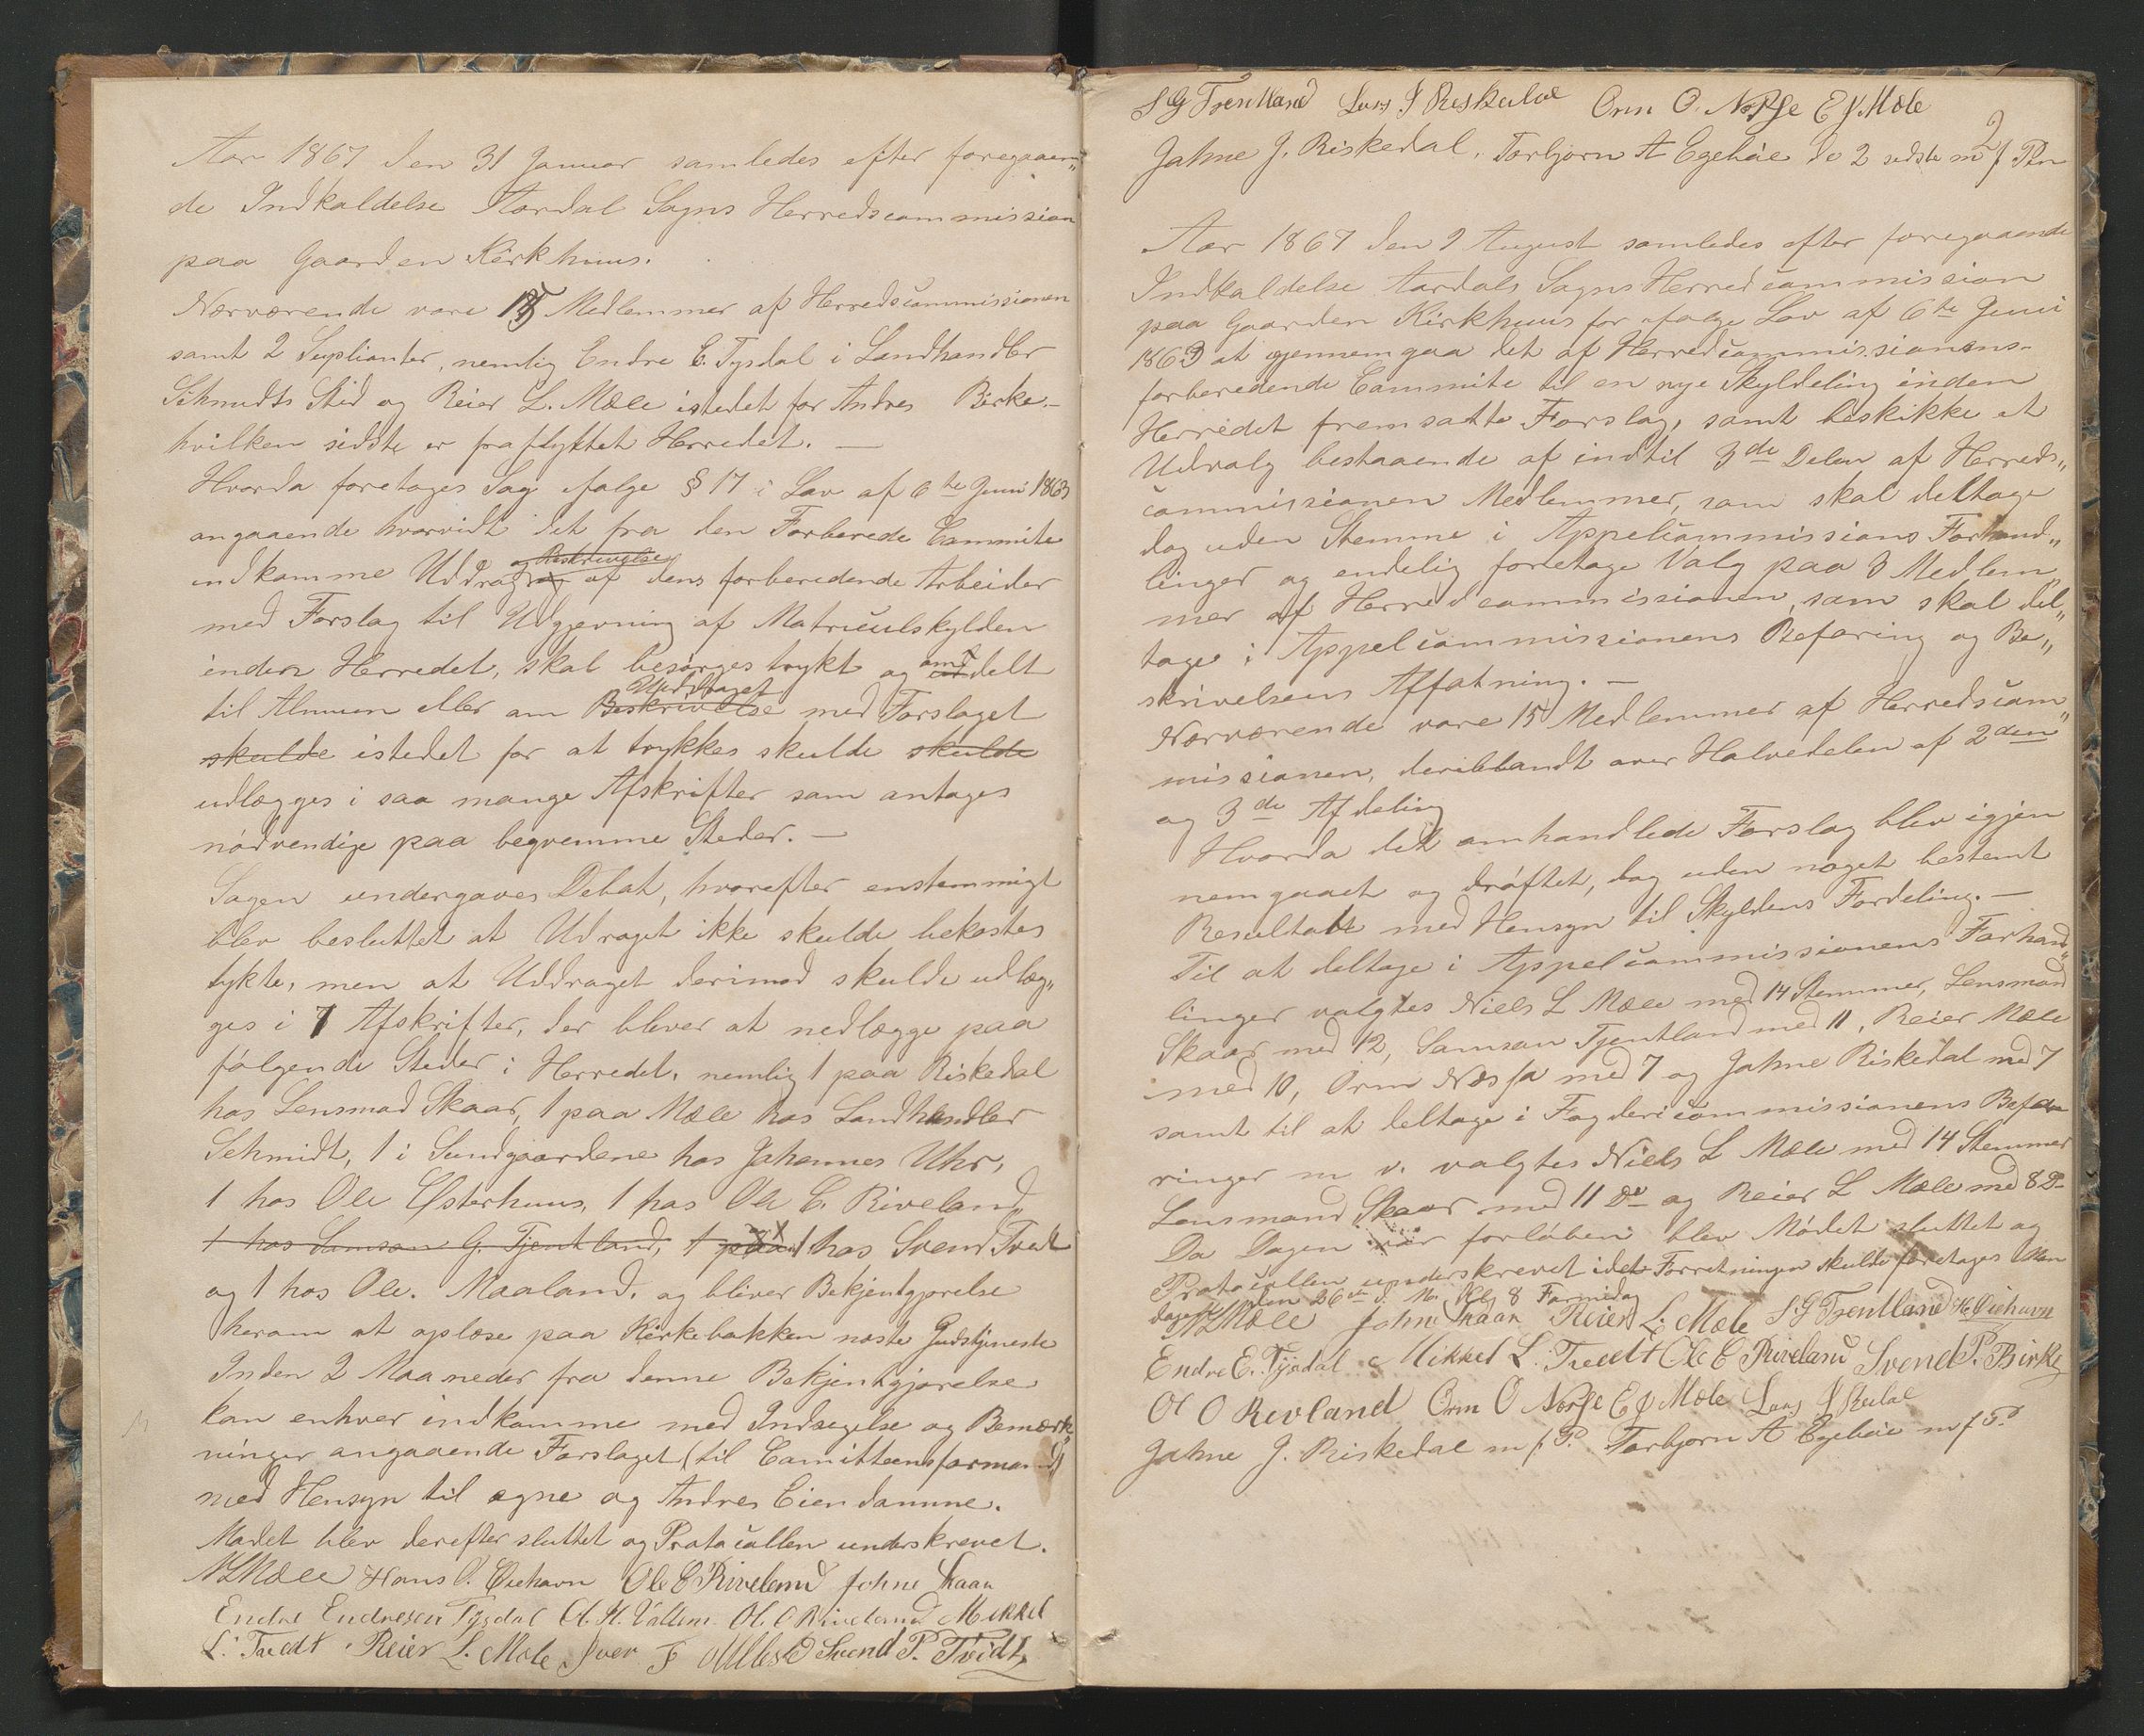 Aar 1867 den 31 Januar samledes efter foregaaen„
de Indkaldelse Aardal Sogns Herredscommission
paa Gaarden Kirkhuus.
Nærværende vare 15 Medlemmer af Herredscommissionen
samt 2 Suplianter, nemlig Endre E. Tysdal i Landhandler
Schmidts Sted og Reier L. Mæle istedet for Andres Birke.—
hvilken sidste er fraflyttet Herredet. —
Hvorda foretages Sag ifølge § 17 i Lov af 6te Juni 1863
angaaende hvorvidt det fra den Forberede Commite
indkomme Uddrag og Beskrivelse af dens forberedende Arbeider
med Forslag til Udgjevning af Matriculskylden
inden Herredet, skal besørges trykt og omdelt
til Almuen eller om Beskrivelse Uddraget med Forslaget
skulde istedet for at trykkes skulde skulde
udlægges i saa mange Afskrifter som antages
nødvendige paa beqvemme Steder. —
Sagen undergaves Debat, hvorefter enstemmigt
blev besluttet at Udraget ikke skulde bekostes
tykte, men at Uddraget derimod skulde udlæg„
ges i 7 Afskrifter, der bliver at nedlægge paa
følgende Steder i Herredet, nemlig 1 paa Riskedal
hos Lensmad Skaar, 1 paa Mæle hos Landhandler
Schmidt, 1 i Sundgaardene hos Johannes Uhr,
1 hos Ole Østerhuus, 1 hos Ole E. Riveland,
1 hos Samson G. Tjentland, 1 paa 1 hos Svend Tvedt
og 1 hos Ole. Maaland. og bliver Bekjentgjørelse
herom at oplæse paa Kirkebakken næste Gudstjeneste
Inden 2 Maaneder fra denne Bekjentgjørelse
kan enhver indkomme med Indsegelse og Bemærk„
ninger angaaende Forslaget (til Comitteens formand)
med Hensyn til egne og Andres Eiendomme.
Mødet blev derefter sluttet og Protocollen underskrevet.
NLMæle Hans O. Øiehavn Ole E Riveland John Skaar
Endre Endresen Tysdal Ol. H. Vallem Ol. O Riveland Mikkel
L. Tvedt Reier L. Mæle Iver F Svend P. Tvedt
S G Tjentland Lars J Riskedal Orm O. Nessa E J. Mæle
2
Jahne J. Riskedal. Torbjørn A Egehøie de 2 sidste m f Pen
Aar 1867 den 9 August samledes efter foregaaende
Indkaldelse Aardals Sogns Herredcommission
paa Gaarden Kirkhuus for ifølge Lov af 6te Juni
1863 at gjennemgaa det af Herredcommissionens-
forberedende Commite til en nye Skyldeling inden
Herredet fremsatte Forslag, samt beskikke et
Udvalg bestaaende af indtil 3de Delen af Herreds„
commissionen Medlemmer, som skal deltage
dog uden Stemme i Appelcommissions Forhand„
linger og endelig foretage Valg paa 3 Medlem„
mer af Herredcommissionen, som skal del„
tage i Appelcommissionens Befaring og Be„
skrivelsens Affatning. —
Nærværende vare 15 Medlemmer af Herredscom„
missionen, deriblandt over Halvedelen af 2den
og 3de Afdeling
Hvorda det omhandlede Forslag blev igjen
nemgaaet og drøftet, dog uden noget bestemt
Resultatt med Hensyn til Skyldens Fordeling. —
Til at deltage i Appelcommissionens Forhand„
linger valgtes Niels L Mæle med 14 Stemmer, Lensmand
Skaar med 12, Samson Tjentland med 11, Reier Mæle
med 10, Orm Nessa med 7 og Jahne Riskedal med 7
samt til at deltage i Fogdericommissionens Befa
ringer m v. valgtes Niels L Mæle med 14 Stemmer
Lensmand Skaar med 11 Do og Reier L Mæle med 8 Do
Da Dagen var forløben blev Mødet sluttet og
Protocollen underskrevet idet Forretningen skulde foretages
den 26de d. M. Kl 8 Formidag
NLMæle John Skaar Reier L. Mæle S G Tjentland H. Øiehavn
Endre E. Tysdal Mikkel L. Tvedt Ole E Riveland Svend P. Birke
Ol O Revland Orm O Nessa E J Mæle Lars J
Jahne J. Riskedal m f P. Torbjørn A Egehøie m f P.